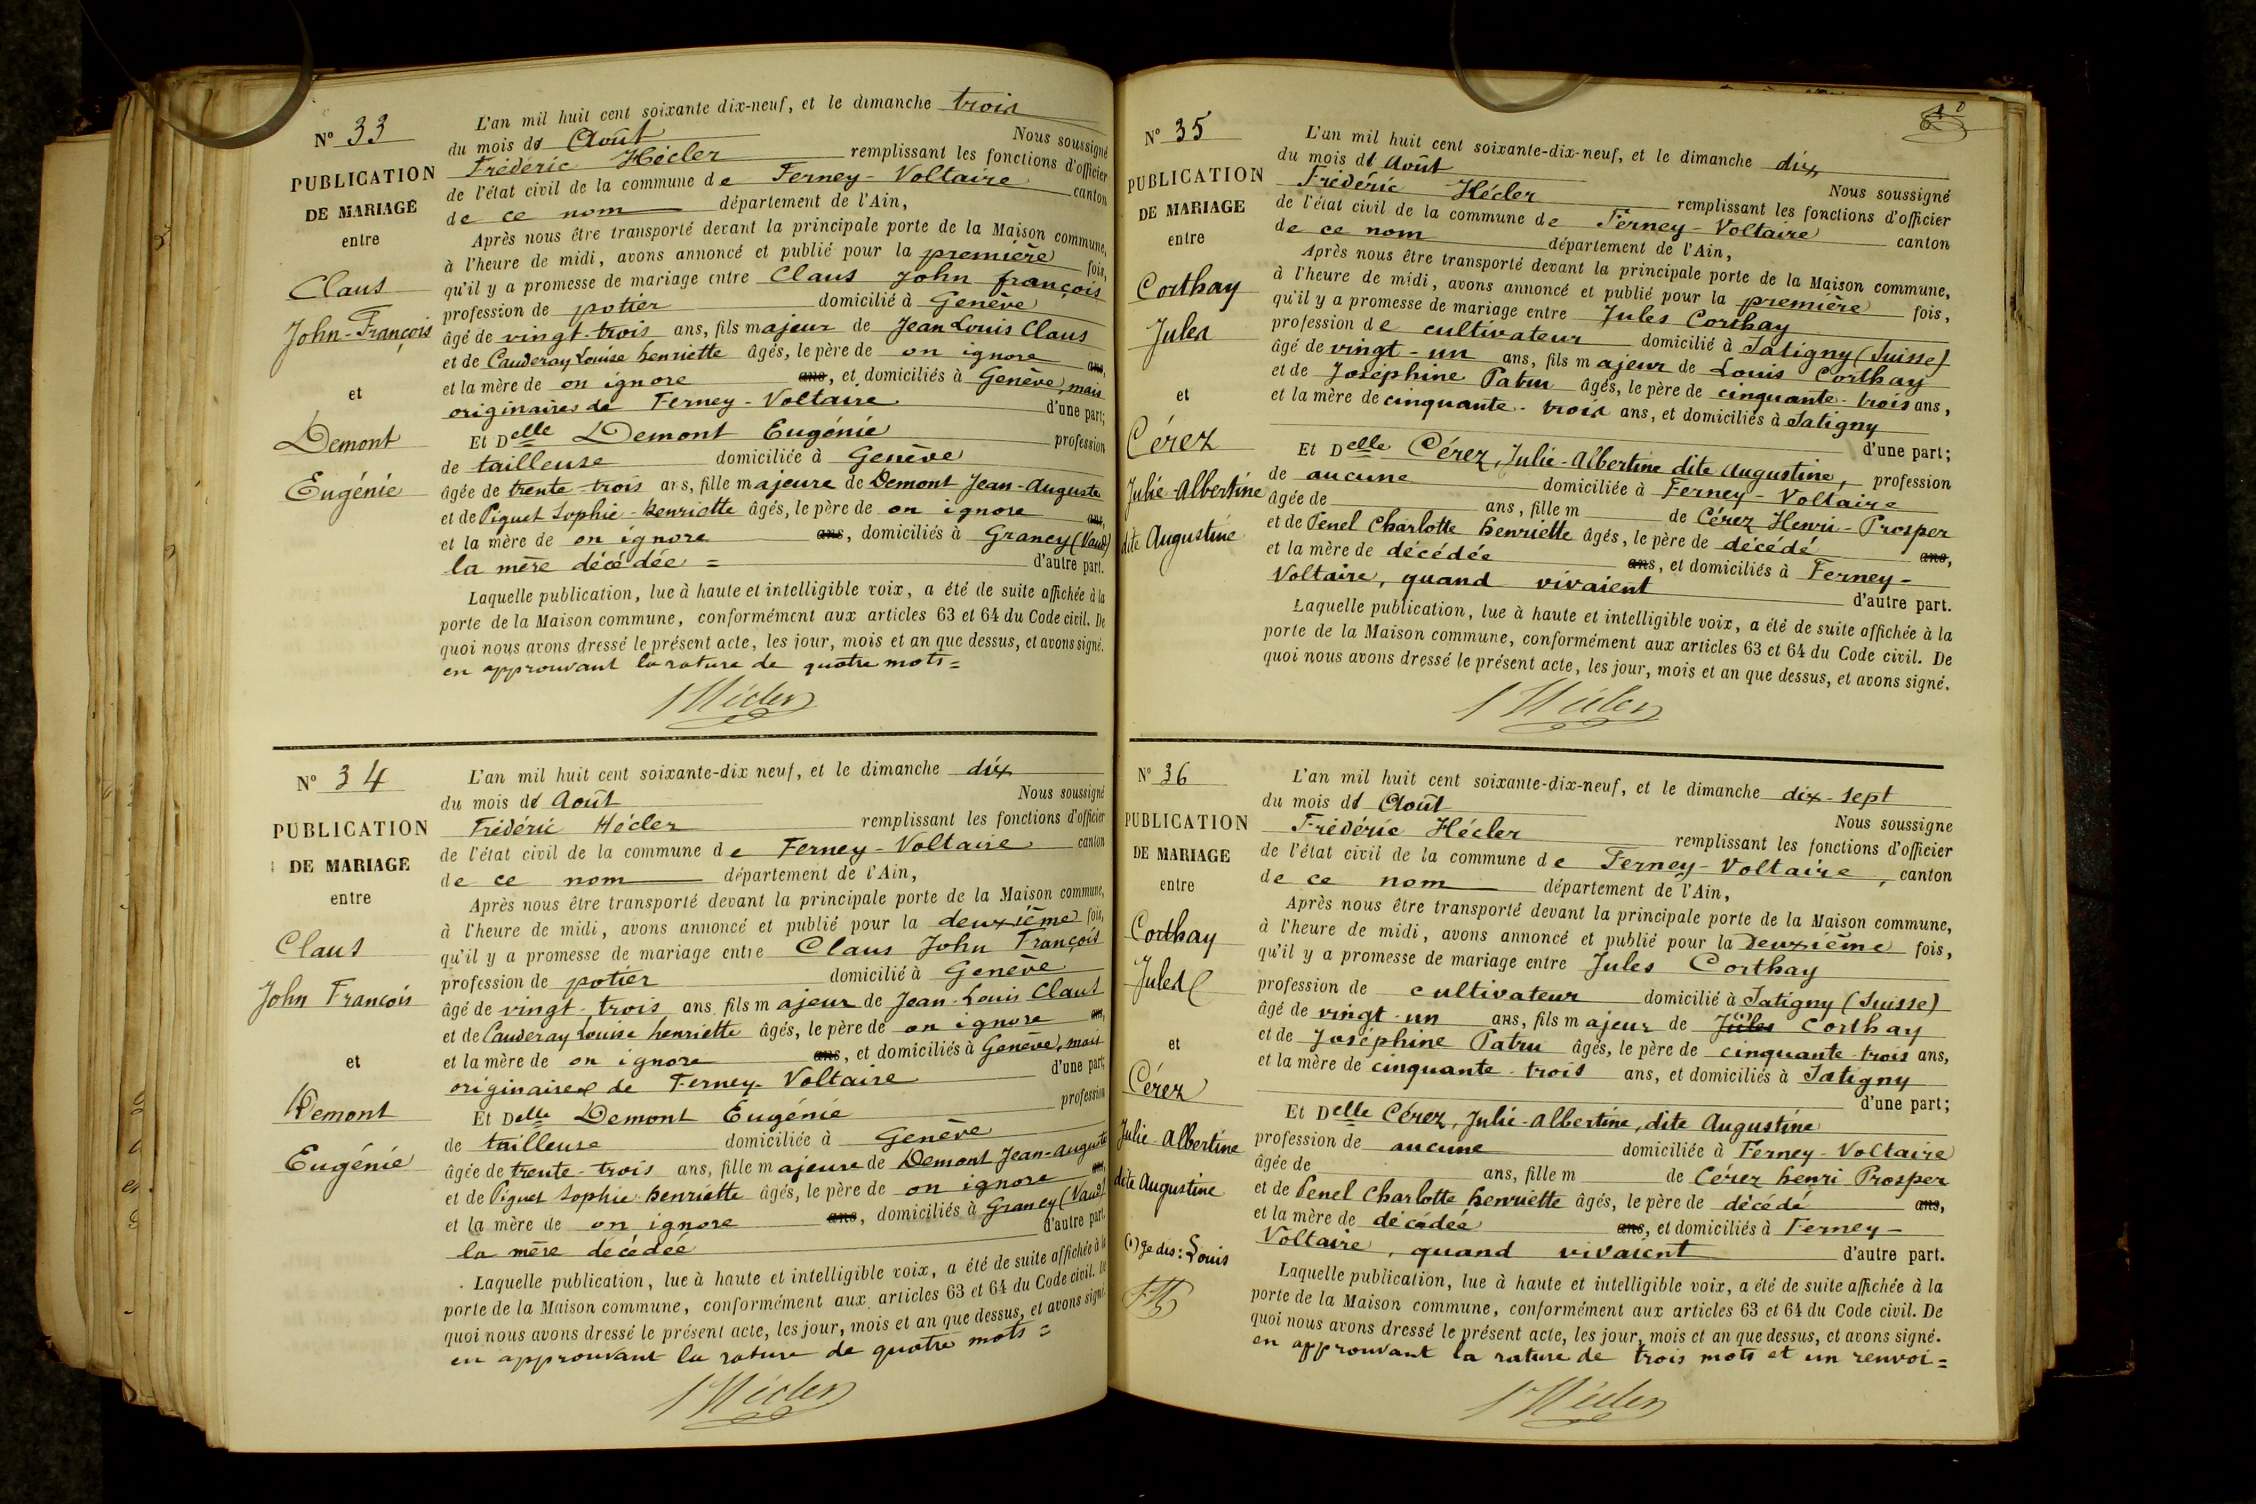 N° 33
PUBLICATION
DE MARIAGE
entre
Claus
John-François
et
Demont
Eugénie
L'an mil huit cent soixante dix-neuf, et le dimanche trois
du mois d Août Nous soussigné
Frédéric Hécler remplissant les fonctions d'officier
de l'état civil de la commune de Ferney-Voltaire canton
de ce nom département de l'Ain,
Après nous être transporté devant la principale porte de la Maison commune,
à l'heure de midi, avons annoncé et publié pour la première fois,
qu'il y a promesse de mariage entre Claus John françois
profession de potier domicilié à Genève
âgé de vingt-trois ans, fils majeur de Jean Louis Claus
et de Cauderay Louise henriette âgés, le père de on ignore ans,
et la mère de on ignore ans, et domiciliés à Genève, mais
originaires de Ferney-Voltaire d'une part;
Et Delle Demont Eugénie profession
de tailleuse domiciliée à Genève
âgée de trente-trois ans, fille majeure de Demont Jean-Auguste
et de Piguet Sophie-henriette âgés, le père de on ignore ans,
et la mère de on ignore ans, domiciliés à Grancy (Vaud)
la mère décédée = d'autre part.
Laquelle publication, lue à haute et intelligible voix, a été de suite affichée à la
porte de la Maison commune, conformément aux articles 63 et 64 du Code civil. De
quoi nous avons dressé le présent acte, les jour, mois et an que dessus, et avons signé.
en approuvant la rature de quatre mots =
Hécler
N° 34
PUBLICATION
DE MARIAGE
entre
Claus
John François
et
Demont
Eugénie
L'an mil huit cent soixante-dix neuf, et le dimanche dix
du mois d Août Nous soussigné
Frédéric Hécler remplissant les fonctions d'officier
de l'état civil de la commune de Ferney-Voltaire canton
de ce nom département de l'Ain,
Après nous être transporté devant la principale porte de la Maison commune,
à l'heure de midi, avons annoncé et publié pour la deuxième fois,
qu'il y a promesse de mariage entre Claus John François
profession de potier domicilié à Genève
âgé de vingt-trois ans fils majeur de Jean-Louis Claus
et de Cauderay Louise henriette âgés, le père de on ignore ans,
et la mère de on ignore ans, et domiciliés à Genève, mais
originaires de Ferney-Voltaire d'une part;
Et Delle Demont Eugénie profession
de tailleuse domiciliée à Genève
âgée de trente-trois ans, fille majeure de Demont Jean-Auguste
et de Piguet Sophie-henriette âgés, le père de on ignore ans,
et la mère de on ignore ans, domiciliés à Grancy (Vaud)
la mère décédée d'autre part.
Laquelle publication, lue à haute et intelligible voix, a été de suite affichée à la
porte de la Maison commune, conformément aux articles 63 et 64 du Code civil. De
quoi nous avons dressé le présent acte, les jour, mois et an que dessus, et avons signé.
en approuvant la rature de quatre mots =
Hécler
N° 35
PUBLICATION
DE MARIAGE
entre
Corthay
Jules
et
Cérez
Julie-Albertine
dite Augustine
L'an mil huit cent soixante-dix-neuf, et le dimanche dix
du mois d Août Nous soussigné
Frédéric Hécler remplissant les fonctions d'officier
de l'état civil de la commune de Ferney-Voltaire canton
de ce nom département de l'Ain,
Après nous être transporté devant la principale porte de la Maison commune,
à l'heure de midi, avons annoncé et publié pour la première fois,
qu'il y a promesse de mariage entre Jules Corthay
profession de cultivateur domicilié à Satigny (Suisse)
âgé de vingt-un ans, fils majeur de Louis Corthay
et de Joséphine Patru âgés, le père de cinquante-trois ans,
et la mère de cinquante-trois ans, et domiciliés à Satigny
d'une part;
Et Delle Cérez, Julie-Albertine dite Augustine, profession
de aucune domiciliée à Ferney-Voltaire
âgée de ans, fille m de Cérez Henri-Prosper
et de Penel Charlotte henriette âgés, le père de décédé ans,
et la mère de décédée ans, et domiciliés à Ferney-
Voltaire, quand vivaient d'autre part.
Laquelle publication, lue à haute et intelligible voix, a été de suite affichée à la
porte de la Maison commune, conformément aux articles 63 et 64 du Code civil. De
quoi nous avons dressé le présent acte, les jour, mois et an que dessus, et avons signé.
Hécler
N° 36
PUBLICATION
DE MARIAGE
entre
Corthay
Jules
et
Cérez
Julie-Albertine
dite Augustine
(1) Je dis: Louis
L'an mil huit cent soixante-dix-neuf, et le dimanche dix-sept
du mois d Août Nous soussigné
Frédéric Hécler remplissant les fonctions d'officier
de l'état civil de la commune de Ferney-Voltaire, canton
de ce nom département de l'Ain,
Après nous être transporté devant la principale porte de la Maison commune,
à l'heure de midi, avons annoncé et publié pour la deuxième fois,
qu'il y a promesse de mariage entre Jules Corthay
profession de cultivateur domicilié à Satigny (Suisse)
âgé de vingt-un ans, fils majeur de Jules (1) Corthay
et de Joséphine Patru âgés, le père de cinquante-trois ans,
et la mère de cinquante-trois ans, et domiciliés à Satigny
d'une part;
Et Delle Cérez, Julie-Albertine, dite Augustine
profession de aucune domiciliée à Ferney-Voltaire
âgée de ans, fille m de Cérez henri Prosper
et de Penel Charlotte henriette âgés, le père de décédé ans,
et la mère de décédée ans, et domiciliés à Ferney-
Voltaire, quand vivaient d'autre part.
Laquelle publication, lue à haute et intelligible voix, a été de suite affichée à la
porte de la Maison commune, conformément aux articles 63 et 64 du Code civil. De
quoi nous avons dressé le présent acte, les jour, mois et an que dessus, et avons signé.
en approuvant la rature de trois mots et un renvoi =
Hécler